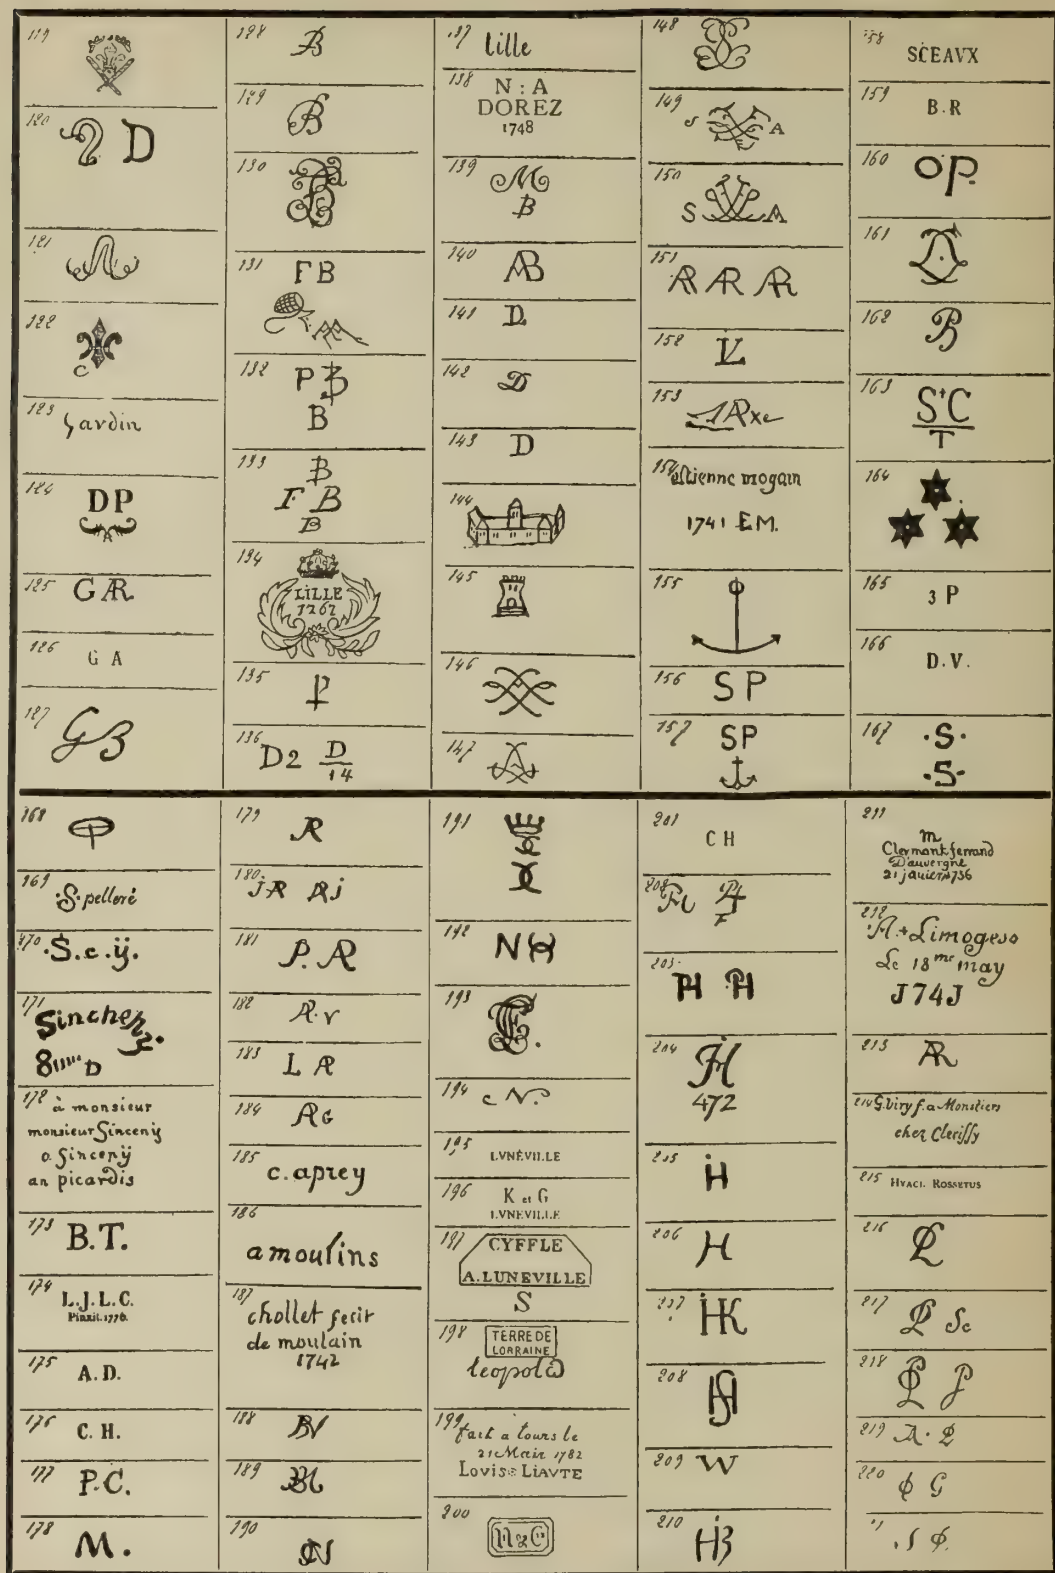 119
120
D
121
122
C
123
Gardin
124
DP
125
G AR
126
G A
127
GB
128
B
129
B
130
131
F B
132
P B
B
133
B
F B
B
134
LILLE
1767
135
P
136
D2 D
14
137
Lille
138
N : A
DOREZ
1748
139
M
B
140
AB
141
D.
142
D
143
D
144
145
146
147
148
149
S A
150
S A
151
AR AR AR
152
153
154
estienne mogain
1741 E.M.
155
156
S P
157
SP
158
SCEAVX
159
B.R
160
OP.
161
162
B
163
S+C
T
164
165
3 P
166
D.V.
167
·S·
·S·
168
169
·S·pelleré
170
·S.c.ÿ.
171
Sincheny.
8 D
172
à monsieur
monsieur Sincenÿ
a Sincenÿ
an picardis
173
B.T.
174
L.J.L.C.
Pinxit. 1776.
175
A.D.
176
C. H.
177
P.C.
178
M.
179
AR
180
JR RJ
181
P. AR
182
AR.V
183
L AR
184
AR G
185
c. aprey
186
a moulins
187
chollet fecit
de moulain
1742
188
189
190
191
192
193
194
c N.
195
LVNÉVILLE
196
K et G
LVNEVILLE
197
CYFFLE
A. LUNEVILLE
S
198
TERRE DE
LORRAINE
leopold
199
fait a tours le
21 Mair 1782
LOVISE LIAVTE
200
201
C H
202
203
PH PH
204
472
205
H
206
H
207
HK
208
209
W
210
HB
211
m
Clermont ferrand
D'auvergne
21 janier 1736
212
A + Limogeso
Le 18me may
J74J
213
AR
214 G. Viry f. a Monstiers
chez Clerissy
215 HYACI. ROSSETUS
216
217
Sc
218
219
220
G